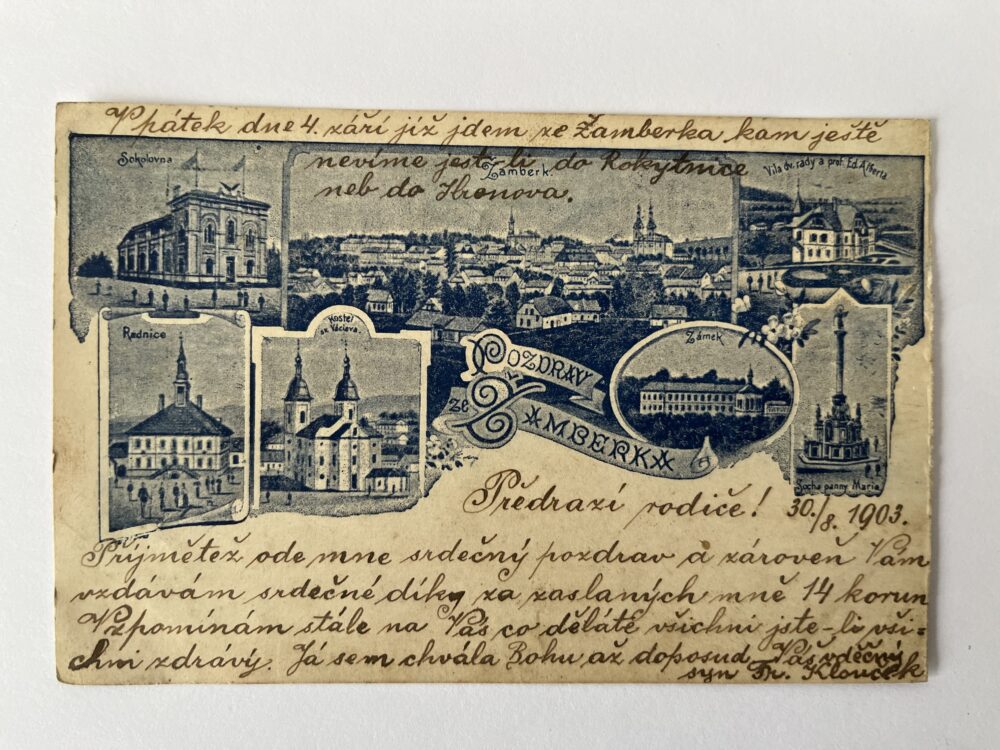 V pátek dne 4. září již jdem ze Žamberka kam ještě
nevíme jest-li do Rokytnice
neb do Hronova.
Sokolovna
Žamberk.
Vila dv. rady a prof. Ed. Alberta
Radnice
Kostel
sv. Václava.
POZDRAV
ZE
ŽAMBERKA
Zámek
Socha panny Marie
Předrazí rodiče! 30./8. 1903.
Příjmětež ode mne srdečný pozdrav a zároveň Vám
vzdávám srdečné díky za zaslaných mně 14 korun
Vzpomínám stále na Vás co děláté všichni jste-li vši-
chni zdrávý. Já sem chvála Bohu až doposud. Váš vděčný
syn Fr. Klouček